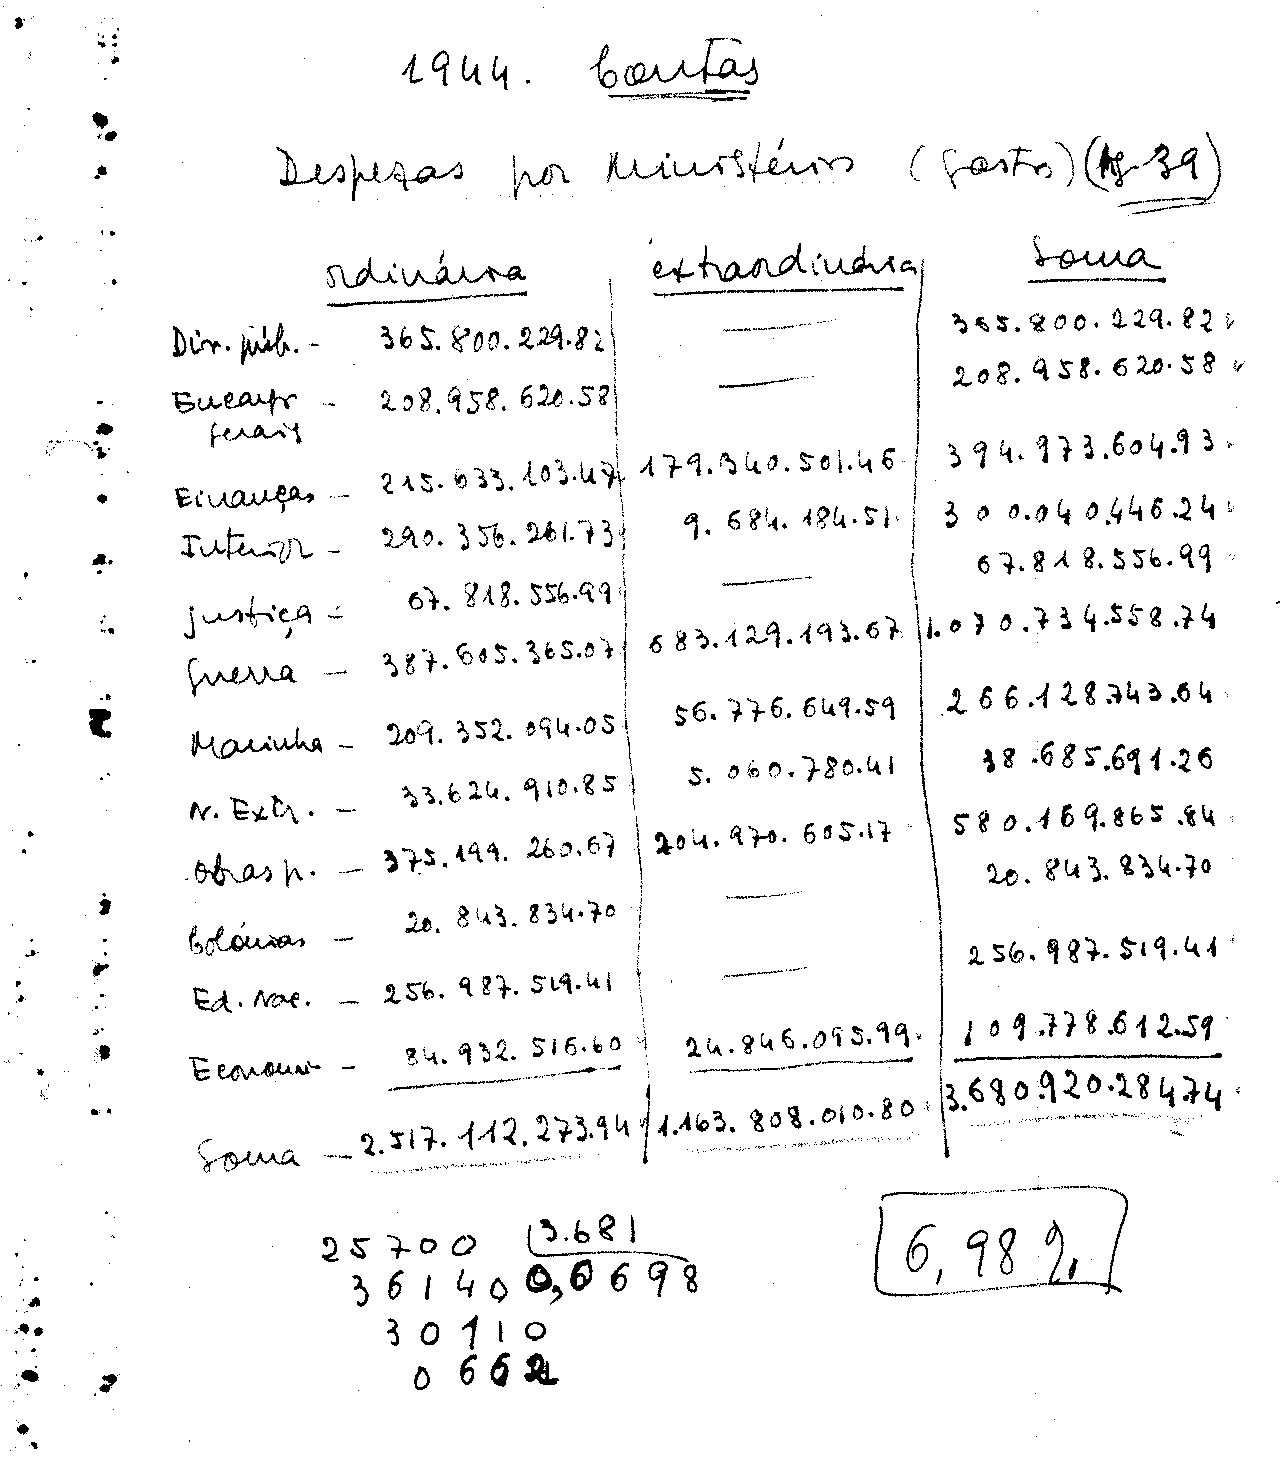 1944. Contas
Despezas por Ministérios (gastos) (pg. 39)
ordinária extraordinária Soma
Div. púb. - 365.800.229.82 — 365.800.229.82
Encargos gerais - 208.958.620.58 — 208.958.620.58
Finanças - 215.633.103.47 179.340.501.46 394.973.604.93
Interior - 290.356.261.73 9.684.184.51 300.040.446.24
Justiça - 67.818.556.99 — 67.818.556.99
Guerra - 387.605.365.07 683.129.193.67 1.070.734.558.74
Marinha - 209.352.094.05 56.776.649.59 266.128.743.64
N. Extr. - 33.624.910.85 5.060.780.41 38.685.691.26
Obras p. - 375.199.260.67 204.970.605.17 580.169.865.84
Colónias - 20.843.834.70 — 20.843.834.70
Ed. Nac. - 256.987.519.41 — 256.987.519.41
Economia - 84.932.516.60 24.846.095.99 109.778.612.59
Soma - 2.517.112.273.94 1.163.808.010.80 3.680.920.284.74
25700 3.681
36140 0,0698
30110
0662
6,98%